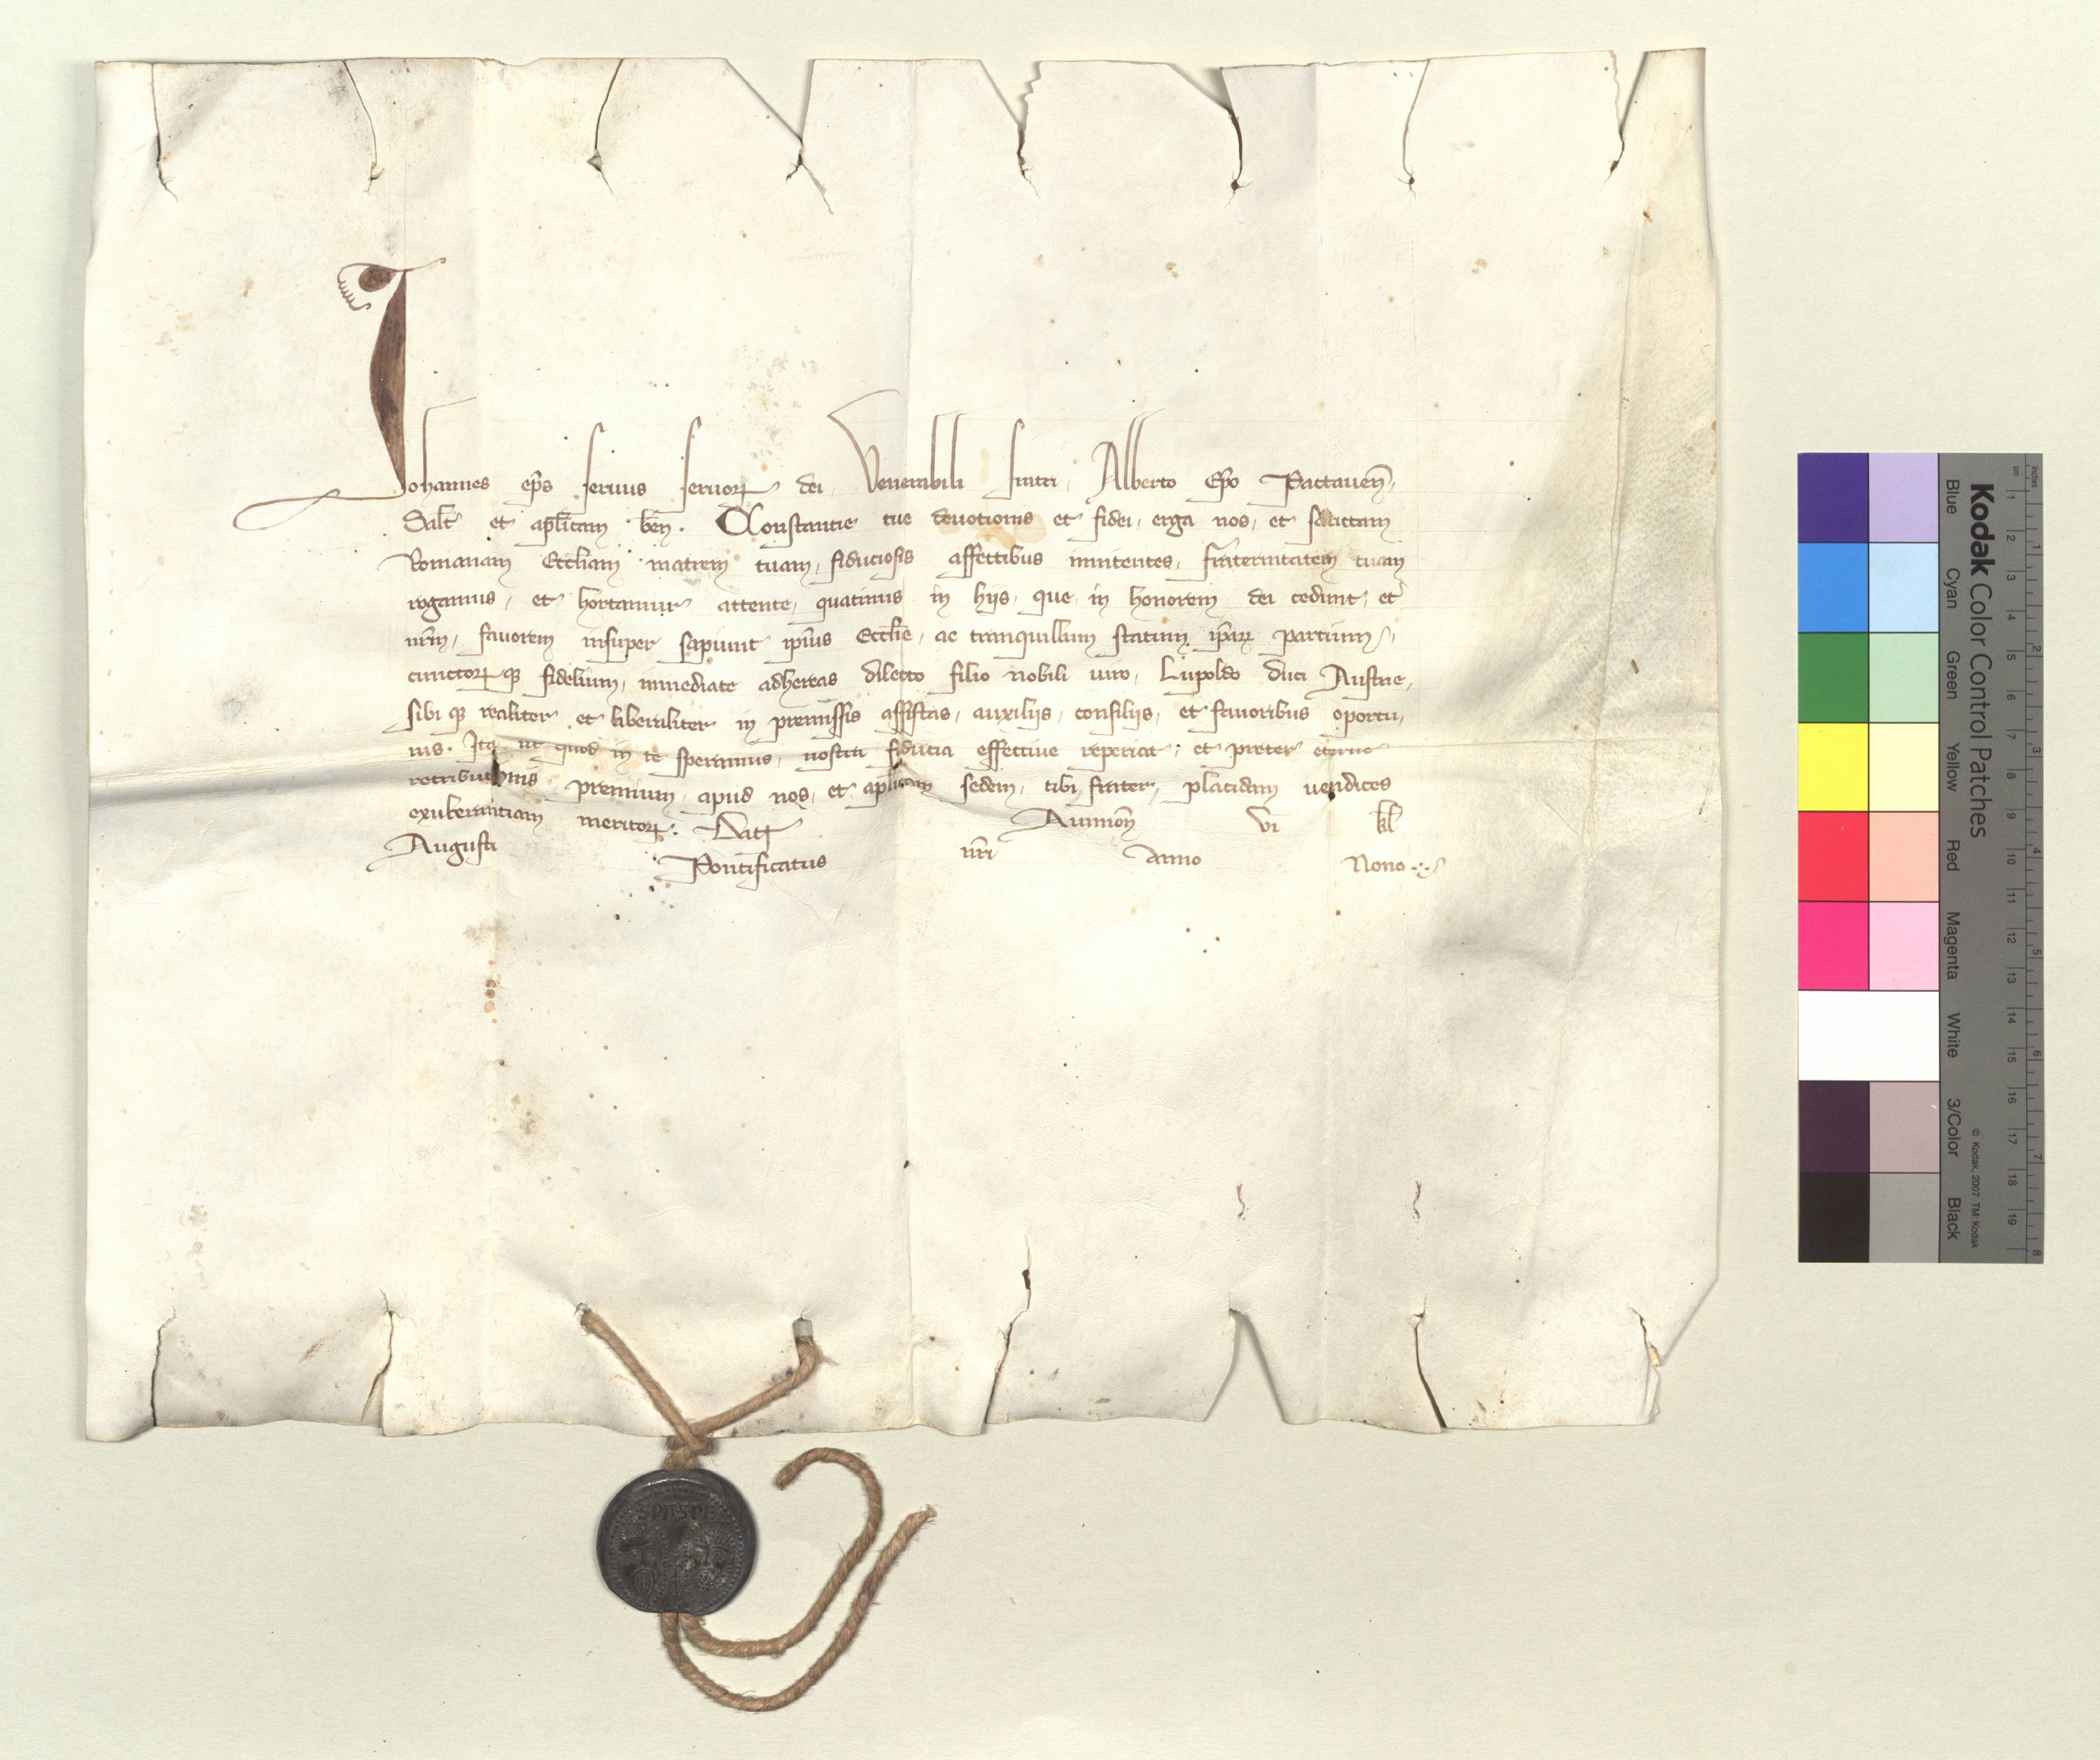 Johannes ep̃s seruus seruoꝝ dei. Venerabili fratri Alberto Ep̃o Pactauen̄,
Salt̃ et apl̃icam ben̄. Constantie tue deuotionis et fidei, erga nos, et sanctam
Romanam Eccl̃iam matrem tuam, fiduciosis affectibus innitentes, fraternitatem tuam
rogamus, et hortamur attente, quatinus in hijs, que in honorem dei cedunt, et
nr̃m, fauorem insuper sapiunt ip̃ius Eccl̃ie, ac tranquillum statum ip̃aꝝ partium,
cunctoꝝ qꝫ fidelium, inmediate adhereas dilecto filio nobili uiro, Lupoldo duci Austrie,
sibi qꝫ realiter et liberaliter in premissis assistas, auxilijs, consilijs, et fauoribus oportu,
nis. Ita ut quod in te speramus, nostra fiducia effectiue reperiat, et preter eterne
retributionis premium, apud nos, et apl̃icam sedem, tibi frater, placidam uendices
exuberantiam meritoꝝ. Dat̃ Auinion̄ vi kl̃
Augusti Pontificatus nr̃i Anno Nono
SPASPE
Kodak Color Control Patches
Blue Cyan Green Yellow Red Magenta White 3/Color Black
© Kodak, 2007 TM: Kodak
inches 1 2 3 4 5 6 7 8
cm 1 2 3 4 5 6 7 8 9 10 11 12 13 14 15 16 17 18 19